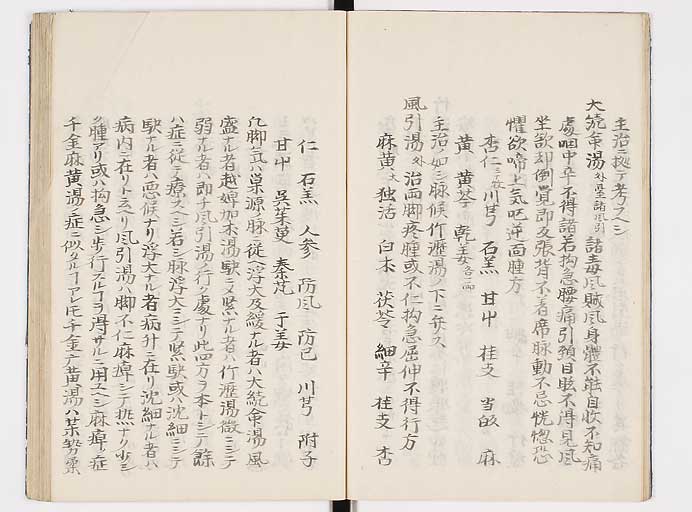 主治ニ拠テ考スヘシ
大続命湯 諸毒風賊風身體不能自收不知痛
處咽中卒不得語若拘急腰痛引頚目眩不得見風
坐欲却倒覺即反張背不着席脉動不忌恍惚恐
懼欲啼上気呃逆面腫方
杏仁 川芎 石羔 甘艸 桂支 当皈 麻
黄 黄芩 乾姜各二両
主治ノ如シ脉候竹瀝湯ノ下ニ弁ス
風引湯 外 治両脚疼腫或不仁拘急屈伸不得行方
麻黄 大 独活 白朮 茯苓 細辛 桂支 杏
仁 石羔 人参 防風 防已 川芎 附子
甘艸 呉茱萸 秦艽 干姜
凡脚気ハ巣源ノ脉ニ従ヒ浮大及緩ナル者ハ大続命湯風
盛ナル者越婢加朮湯駃ニメ緊ナル者ハ竹瀝湯微ニシテ
弱ナル者ハ即チ風引湯ノ行ク處ナリ此四方ヲ本トシテ餘
ハ症ニ従テ療スヘシ若シ脉浮大ニシテ緊駃或ハ沈細ニシテ
駃ナル者ハ悪候ナリ浮大ナル者病外ニ在リ沈細ナル者ハ
病内ニ在リト云ヘリ風引湯ハ脚不仁麻痺シテ熱ナク少シ
ク腫アリ或ハ拘急シ歩行スルヿヲ得サルニ用スヘシ麻痺ノ症
千金麻黄湯ノ症ニ似タルヿアレ𪜈千金ノ黄湯ハ